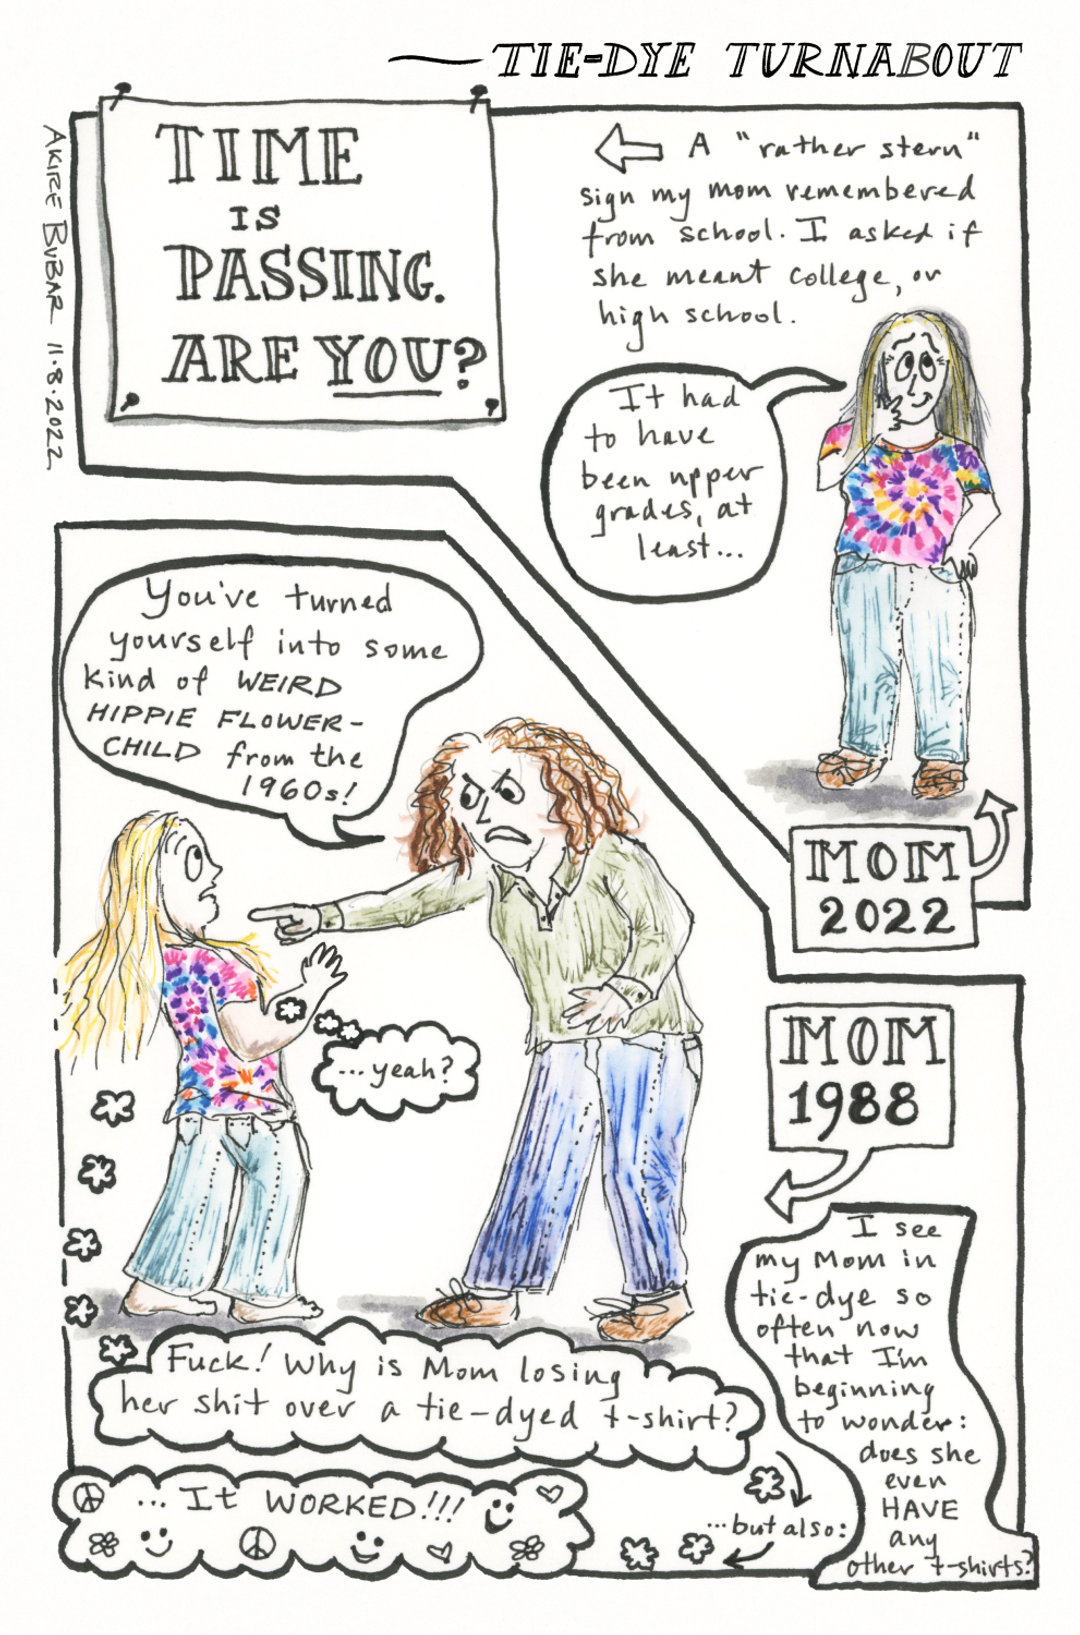 TIE-DYE TURNABOUT
AKIRE BUBAR 11.8.2022
TIME
IS
PASSING.
ARE YOU?
A "rather stern"
sign my mom remembered
from school. I asked if
she meant college, or
high school.
It had
to have
been upper
grades, at
least...
MOM
2022
You've turned
yourself into some
kind of WEIRD
HIPPIE FLOWER-
CHILD from the
1960s!
...yeah?
MOM
1988
I see
my Mom in
tie-dye so
often now
that I'm
beginning
to wonder:
does she
even
HAVE
any
other t-shirts?
Fuck! Why is Mom losing
her shit over a tie-dyed t-shirt?
...but also:
... It WORKED!!!